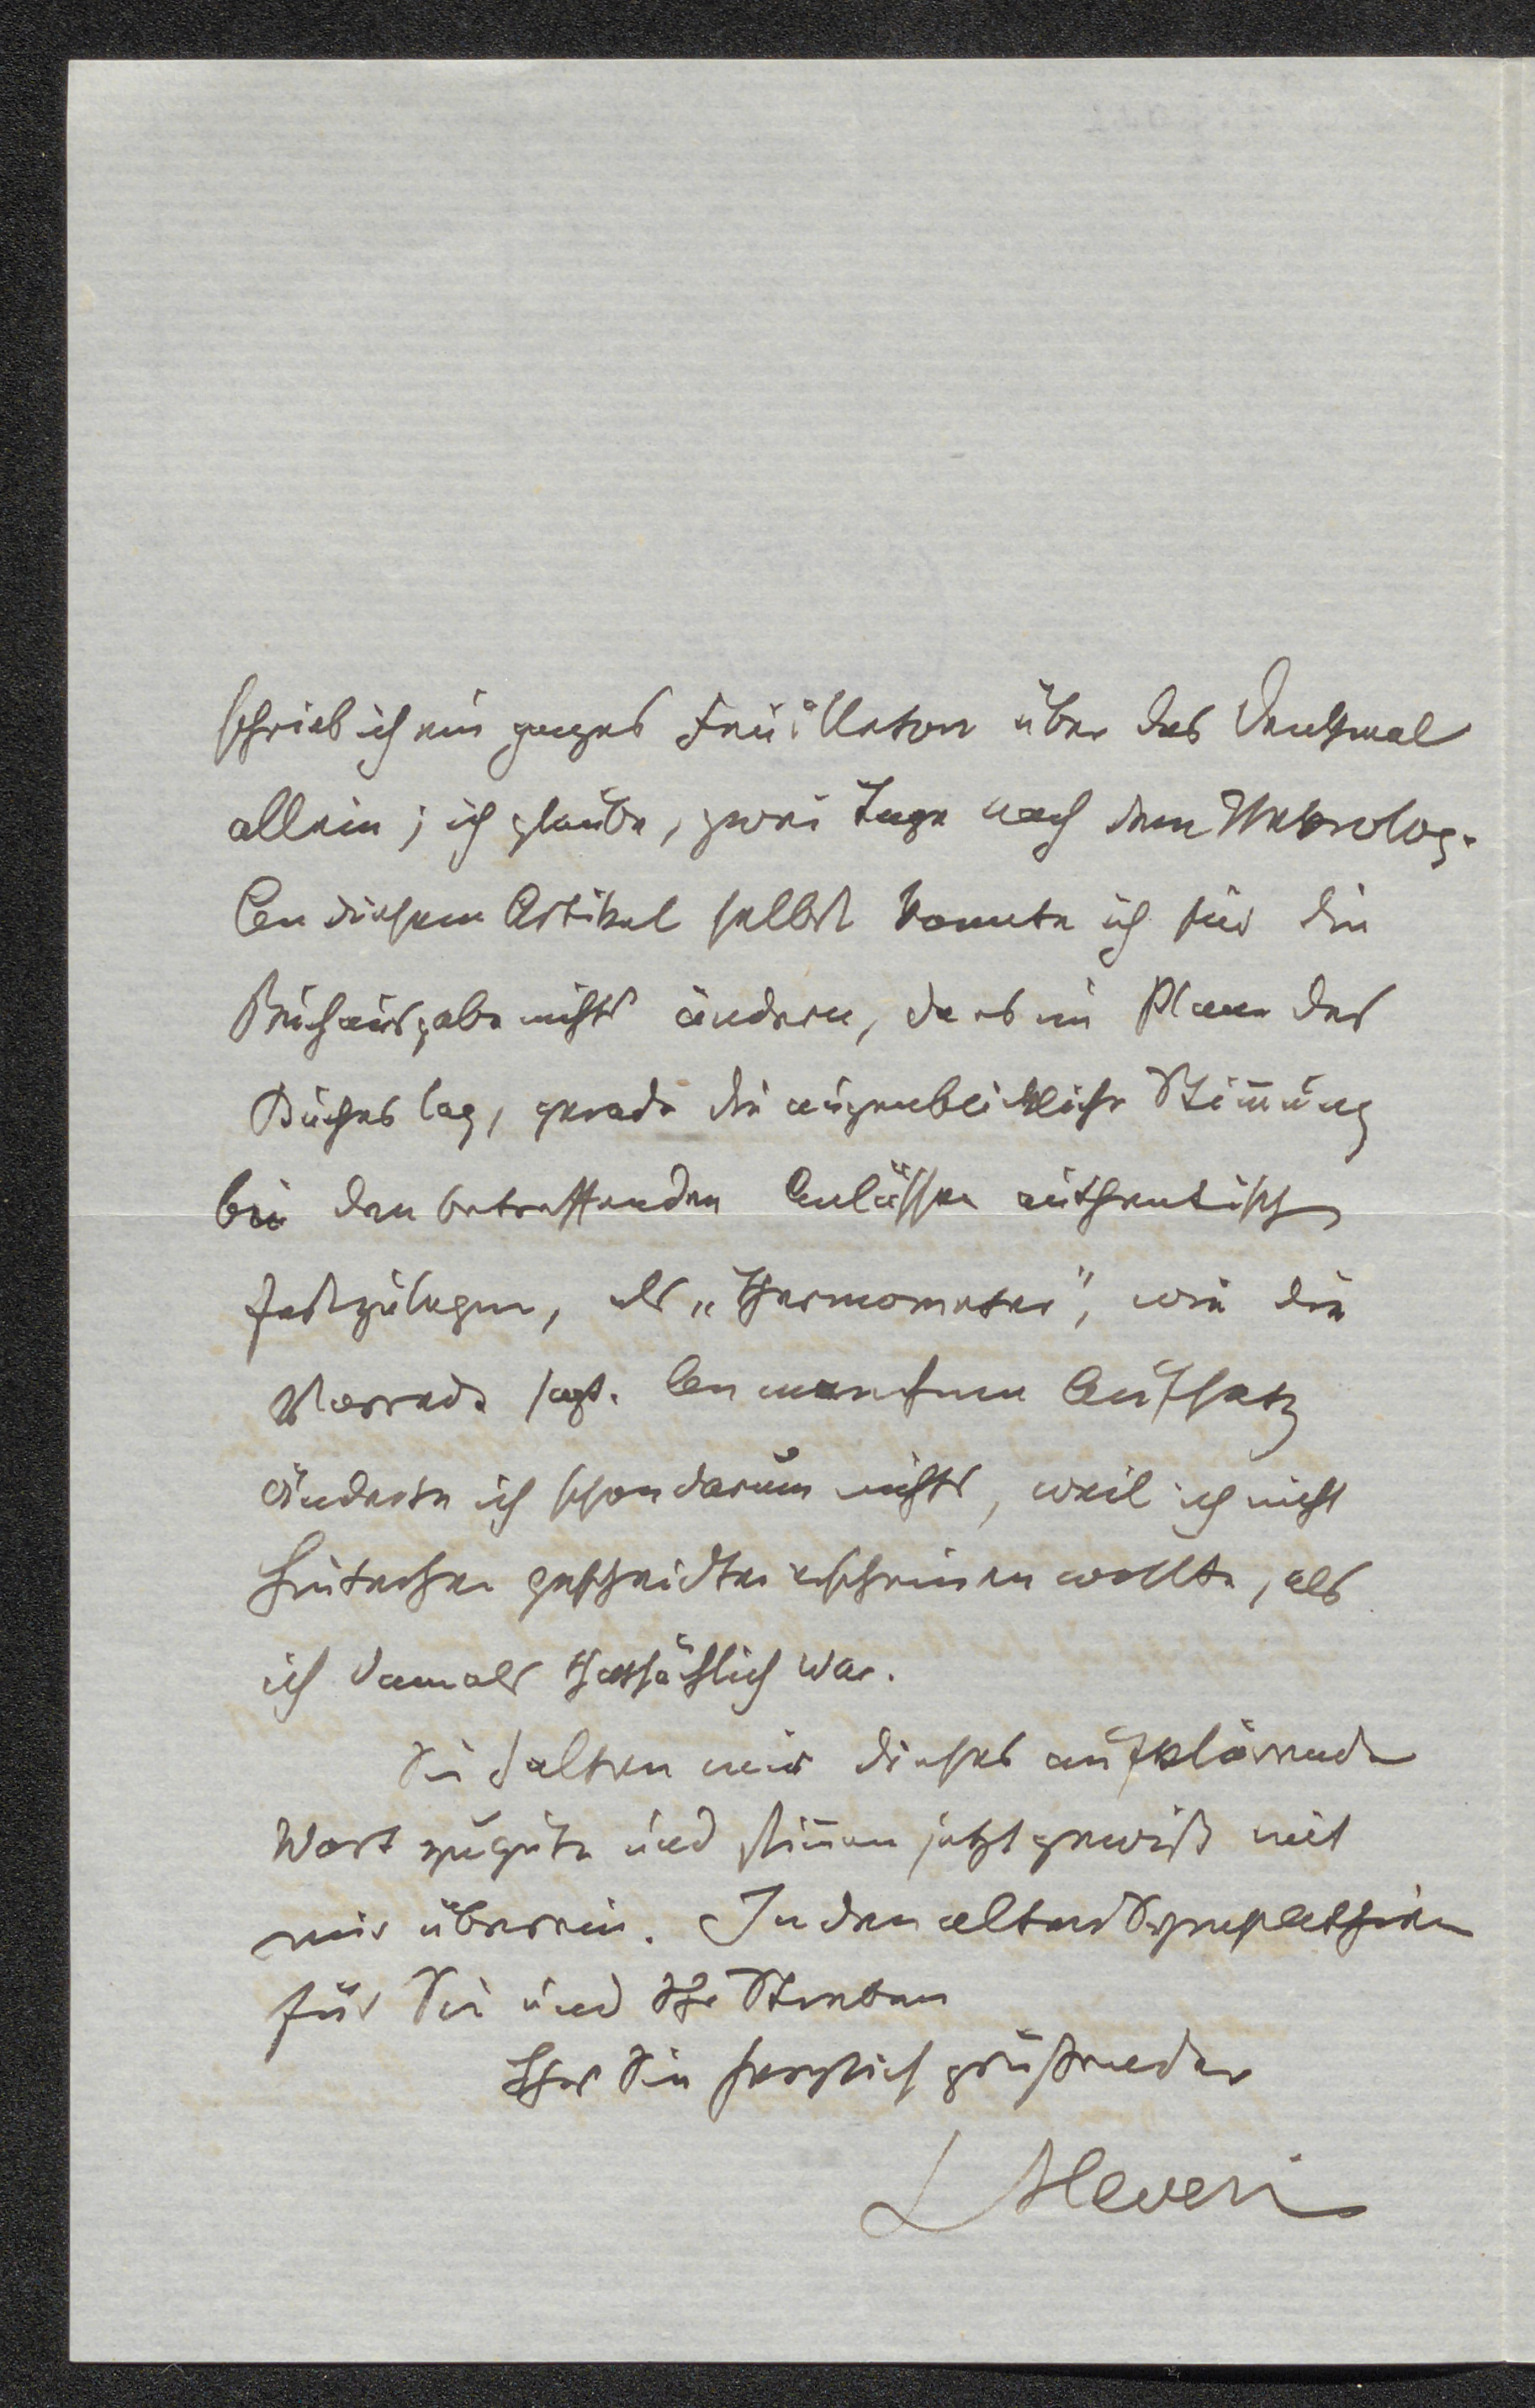 schrieb ich ein ganzes Feuilleton über das Denkmal
allein; ich glaube, zwei Tage nach dem Nekrolog.
An diesem Artikel selbst konnte ich für die
Buchausgabe nichts ändern, da es im Plane des
Buches lag, gerade die augenblickliche Stim̅ung
bei den betreffenden Anlässen authentisch
festzulegen, als „Thermometer“, wie die
Vorrede sagt. An manchem Aufsatz
änderte ich schon darum nichts, weil ich nicht
hinterher gescheidter erscheinen wollte, als
ich damals thatsächlich war.
Sie halten mir dieses aufklärende
Wort zugute und stim̅en jetzt gewiß mit
mir überein. In den alten Sympathien
für Sie und Ihr Streben
Ihr Sie herzlich grüßender
L Hevesi